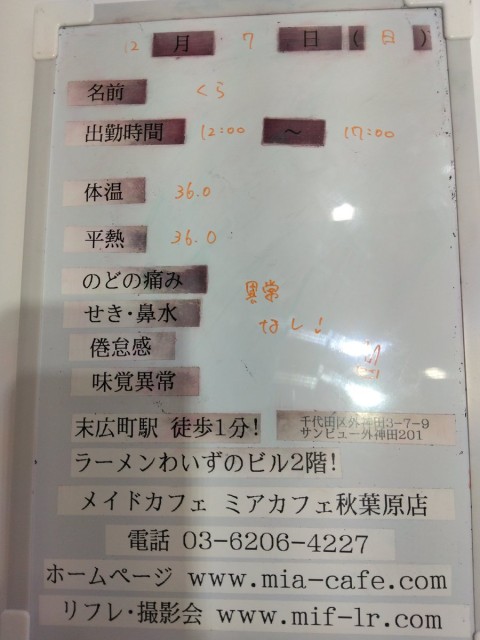 2月7日(日)
名前 くら
出勤時間 12:00 ~ 17:00
体温 36.0
平熱 36.0
のどの痛み 異常
せき・鼻水 なし!
倦怠感
味覚異常
末広町駅 徒歩1分! 千代田区外神田3-7-9
サンビュー外神田201
ラーメンわいずのビル2階!
メイドカフェ ミアカフェ秋葉原店
電話 03-6206-4227
ホームページ www.mia-cafe.com
リフレ・撮影会 www.mif-lr.com